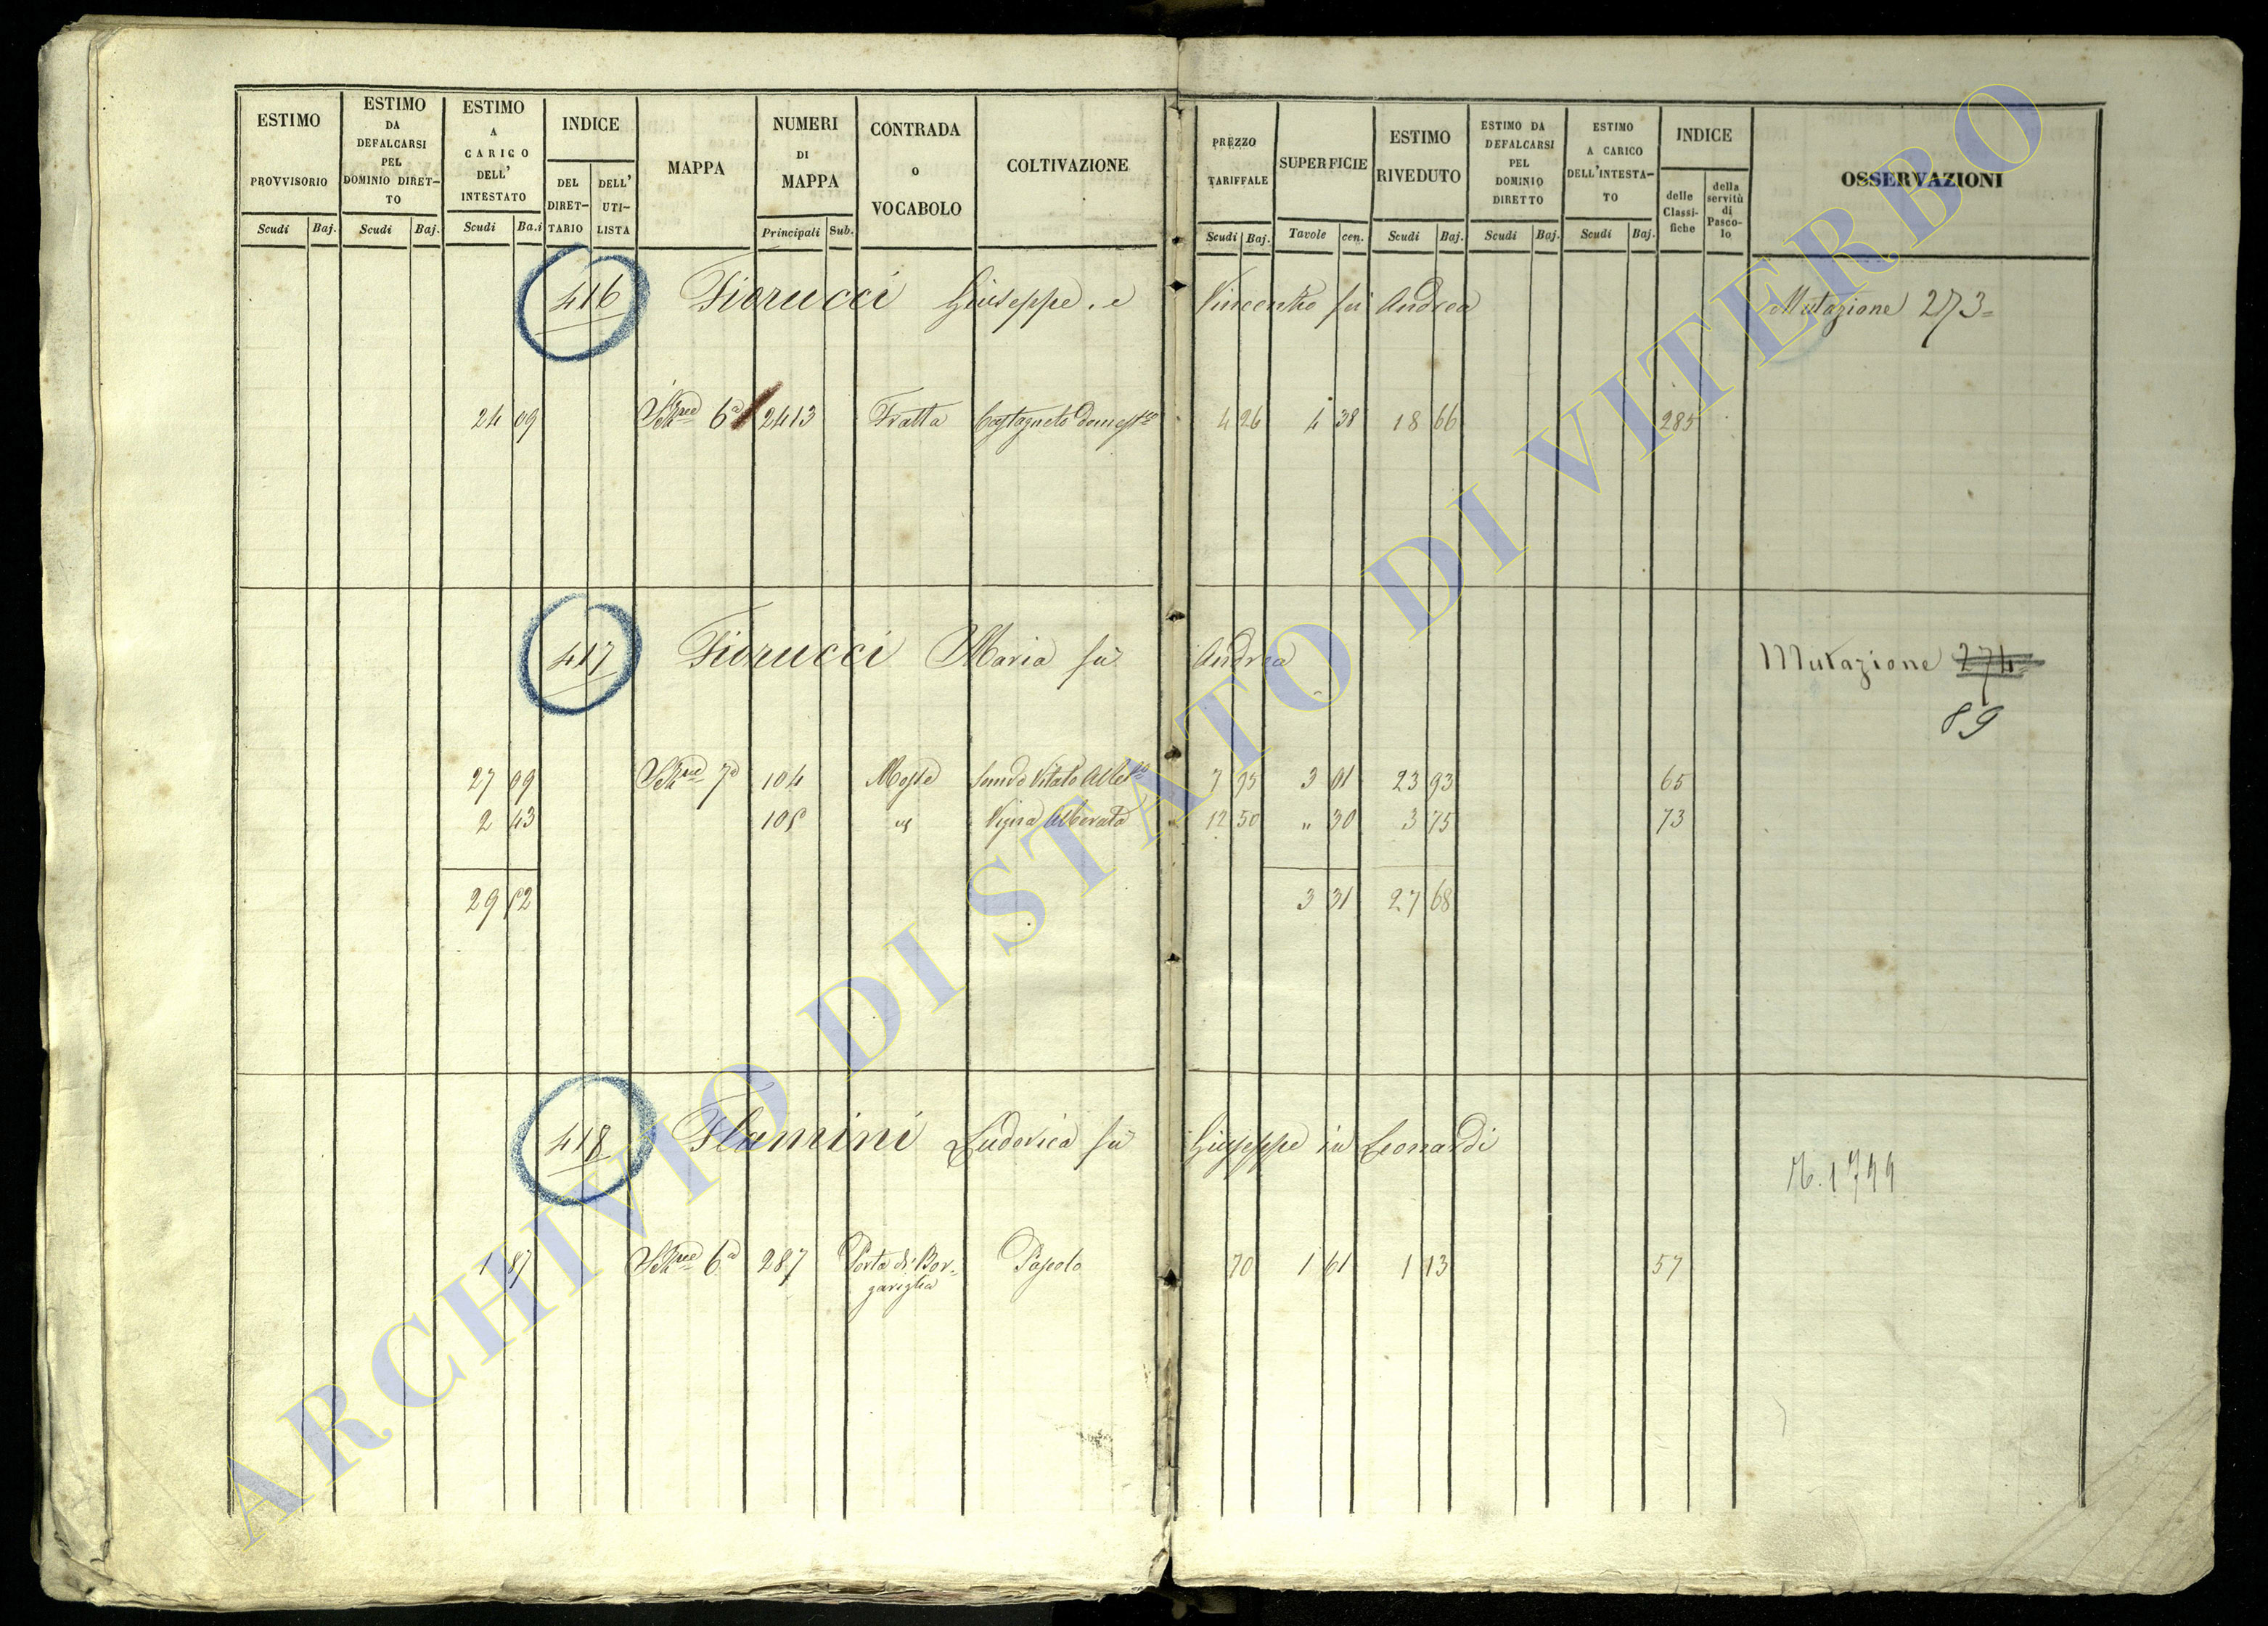 ESTIMO PROVVISORIO
ESTIMO DA DEFALCARSI PEL DOMINIO DIRET-TO
ESTIMO A CARICO DELL' INTESTATO
INDICE
DEL DIRET-TARIO
DELL' UTI-LISTA
MAPPA
NUMERI DI MAPPA
CONTRADA o VOCABOLO
COLTIVAZIONE
PREZZO TARIFFALE
SUPERFICIE
ESTIMO RIVEDUTO
ESTIMO DA DEFALCARSI PEL DOMINIO DIRETTO
ESTIMO A CARICO DELL'INTESTA-TO
INDICE
delle Classi-fiche
della servitù di Pasco-lo
OSSERVAZIONI
Scudi Baj. Scudi Baj. Scudi Ba.i Principali Sub. Scudi Baj. Tavole cen. Scudi Baj. Scudi Baj. Scudi Baj.
416 Fiorucci Giuseppe e Vincenzo fù Andrea Mutazione 273=
24 09 6a 2413 Fratta Castagneto 4 26 4 38 18 66 285
417 Fiorucci Maria fù Andrea Mutazione 274
89
27 09 7a 104 3 01 23 93 65
2 43 105 Vigna Alberata 12 50 " 30 3 75 73
29 52 3 31 27 68
418 Flamini Ludovica fù Giuseppe in Leonardi
1 87 6a 287 Porta di Bor= Pascolo 70 1 61 1 13 57
gariglia
ARCHIVIO DI STATO DI VITERBO